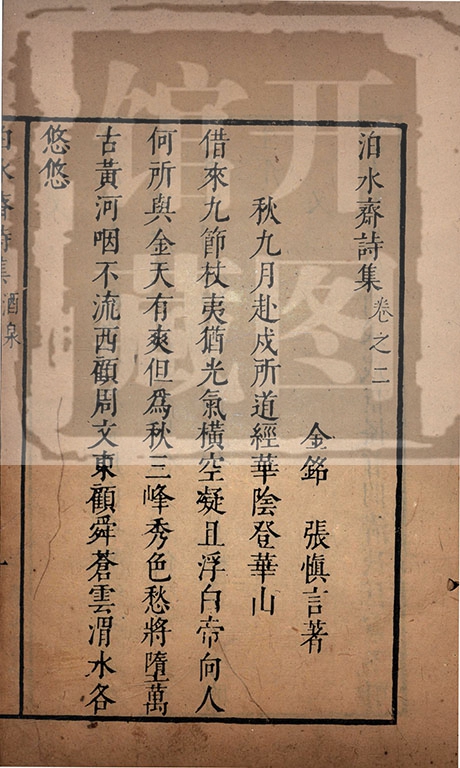 泊水齋詩集 卷之二
金銘 張慎言著
秋九月赴戍所道經華陰登華山
借來九節杖夷猶光氣橫空凝且浮白帝向人
何所與金天有爽但為秋三峰秀色愁將墮萬
古黃河咽不流西顧周文東顧舜蒼雲渭水各
悠悠
泊水齋詩集 酒泉 一
开图
馆藏